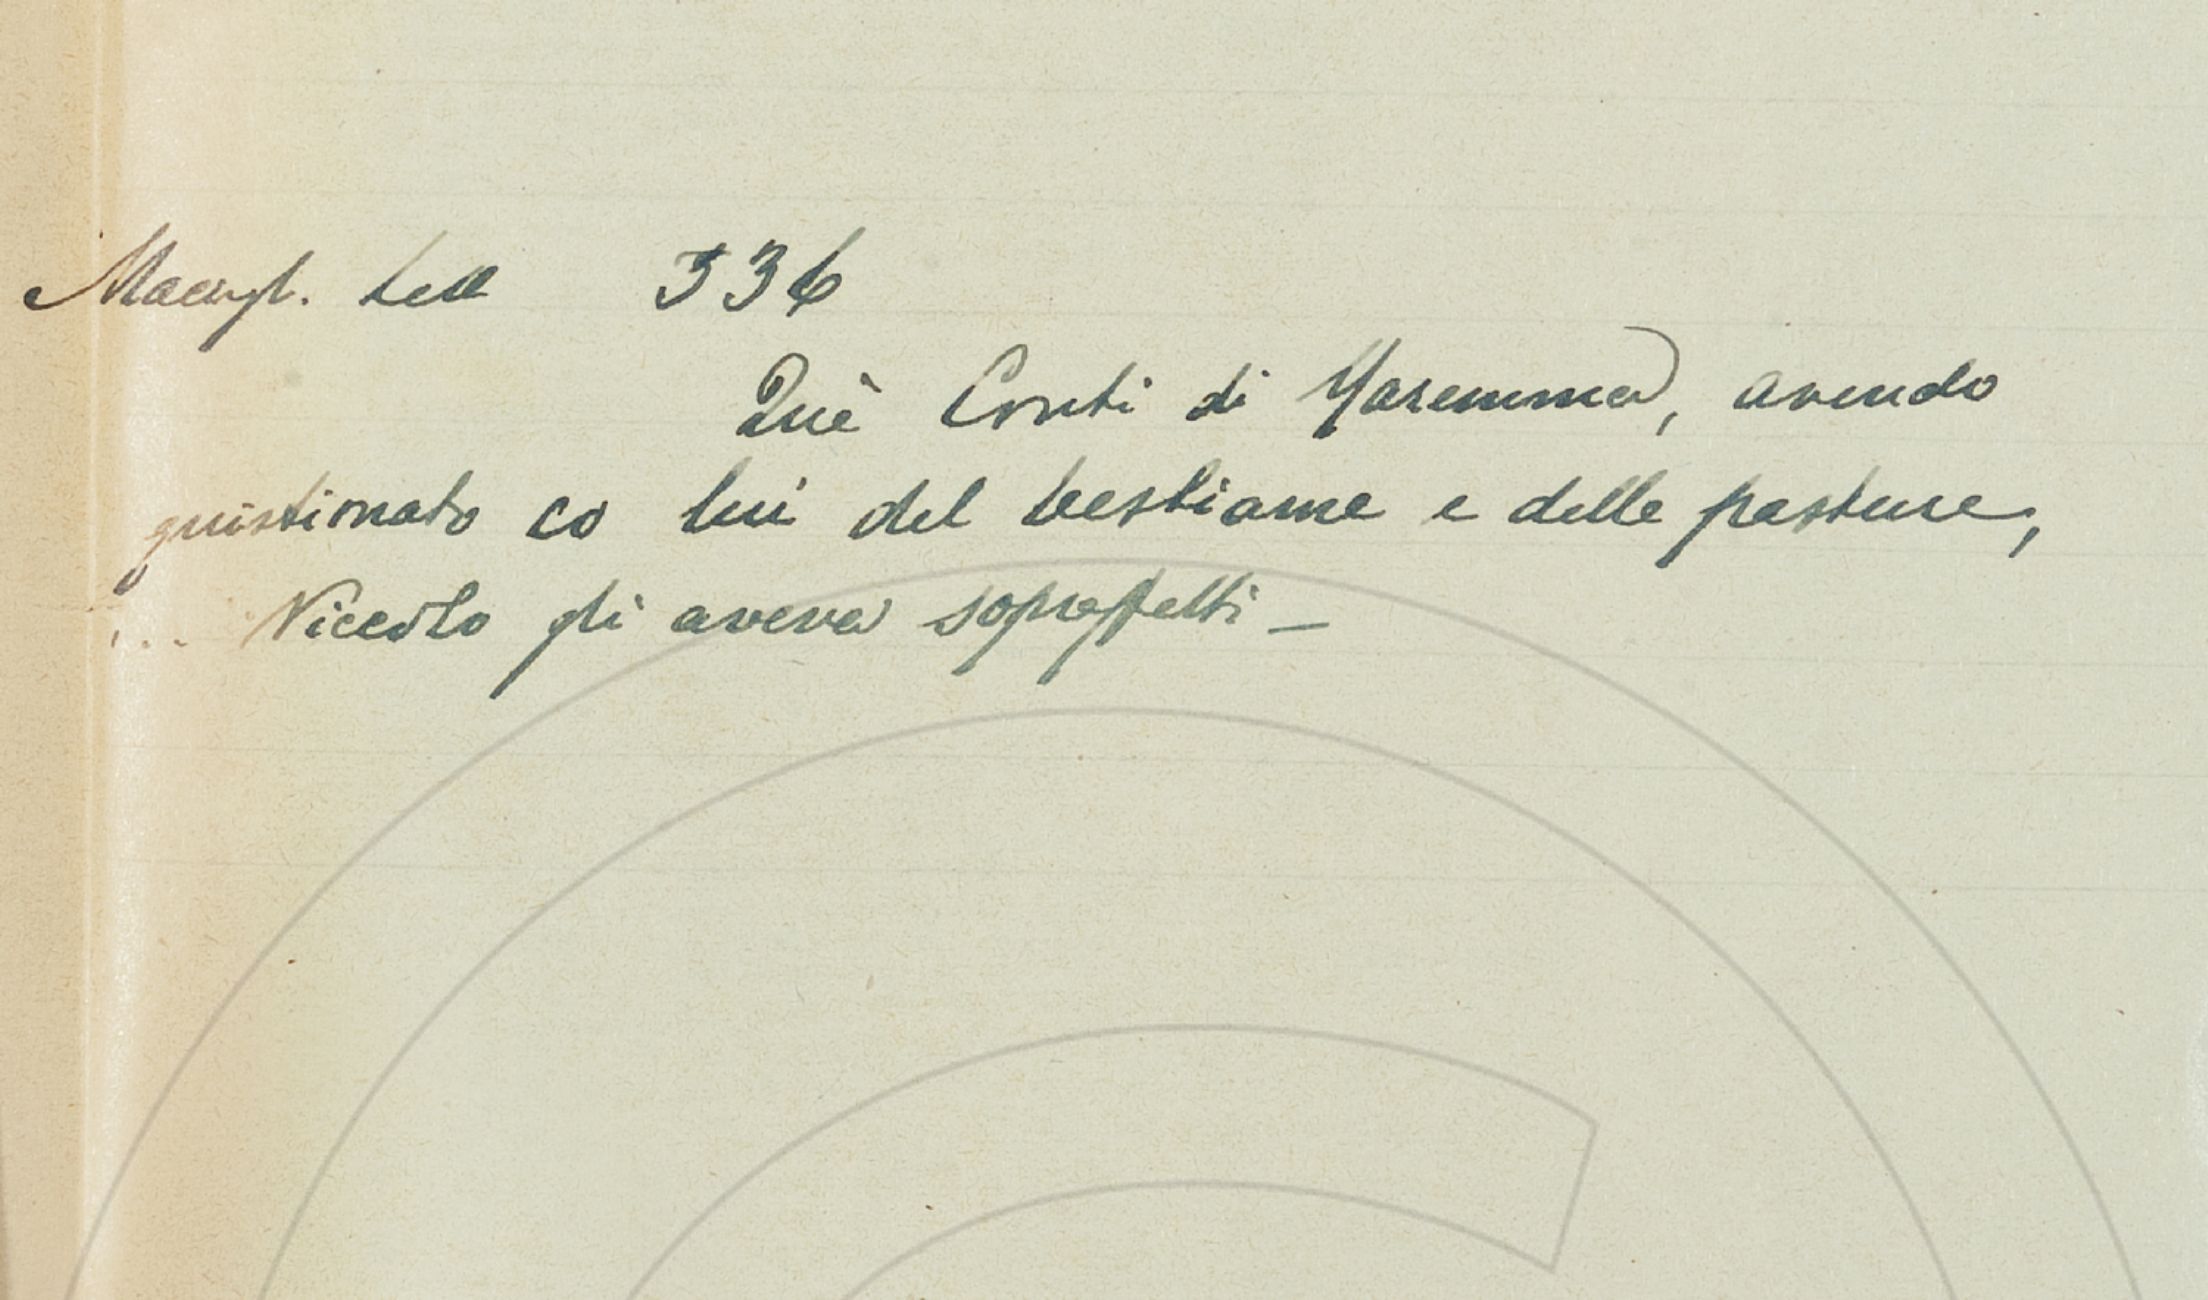 336
Què Conti di Maremma, avendo
quistionato co lui del bestiame e delle pasture,
... Niccolò gli aveva sopraffatti —